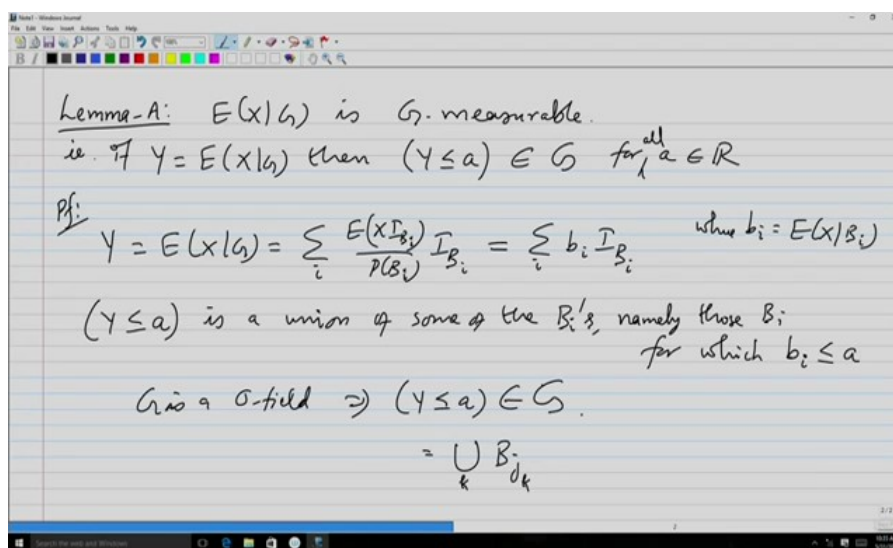 Note1 - Windows Journal
File Edit View Insert Actions Tools Help
Lemma-A: E(X|G) is G-measurable.
ie. If Y = E(X|G) then (Y ≤ a) ∈ G for all a ∈ R
Pf:
Y = E(X|G) = ∑_i E(X I_{B_i})/P(B_i) I_{B_i} = ∑_i b_i I_{B_i} where b_i = E(X|B_i)
(Y ≤ a) is a union of some of the B_i's, namely those B_i
for which b_i ≤ a
G is a σ-field ⇒ (Y ≤ a) ∈ G.
= ∪_k B_{j_k}
2/2
Search the web and Windows